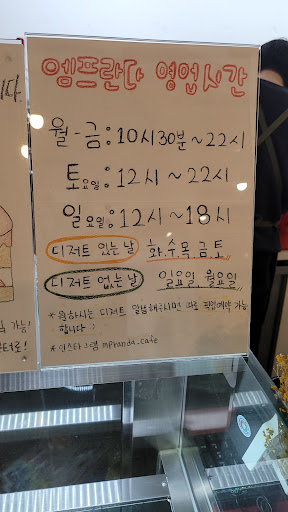 엠프란다 영업시간
월-금: 10시30분~22시
토요일: 12시~22시
일요일: 12시~18시
디저트 있는날 화.수.목.금.토
디저트 없는날 일요일, 월요일
*원하시는 디저트 말씀해주시면 따로 픽업예약 가능
합니다!
*인스타그램 mpranda.cafe
니다.
가능!